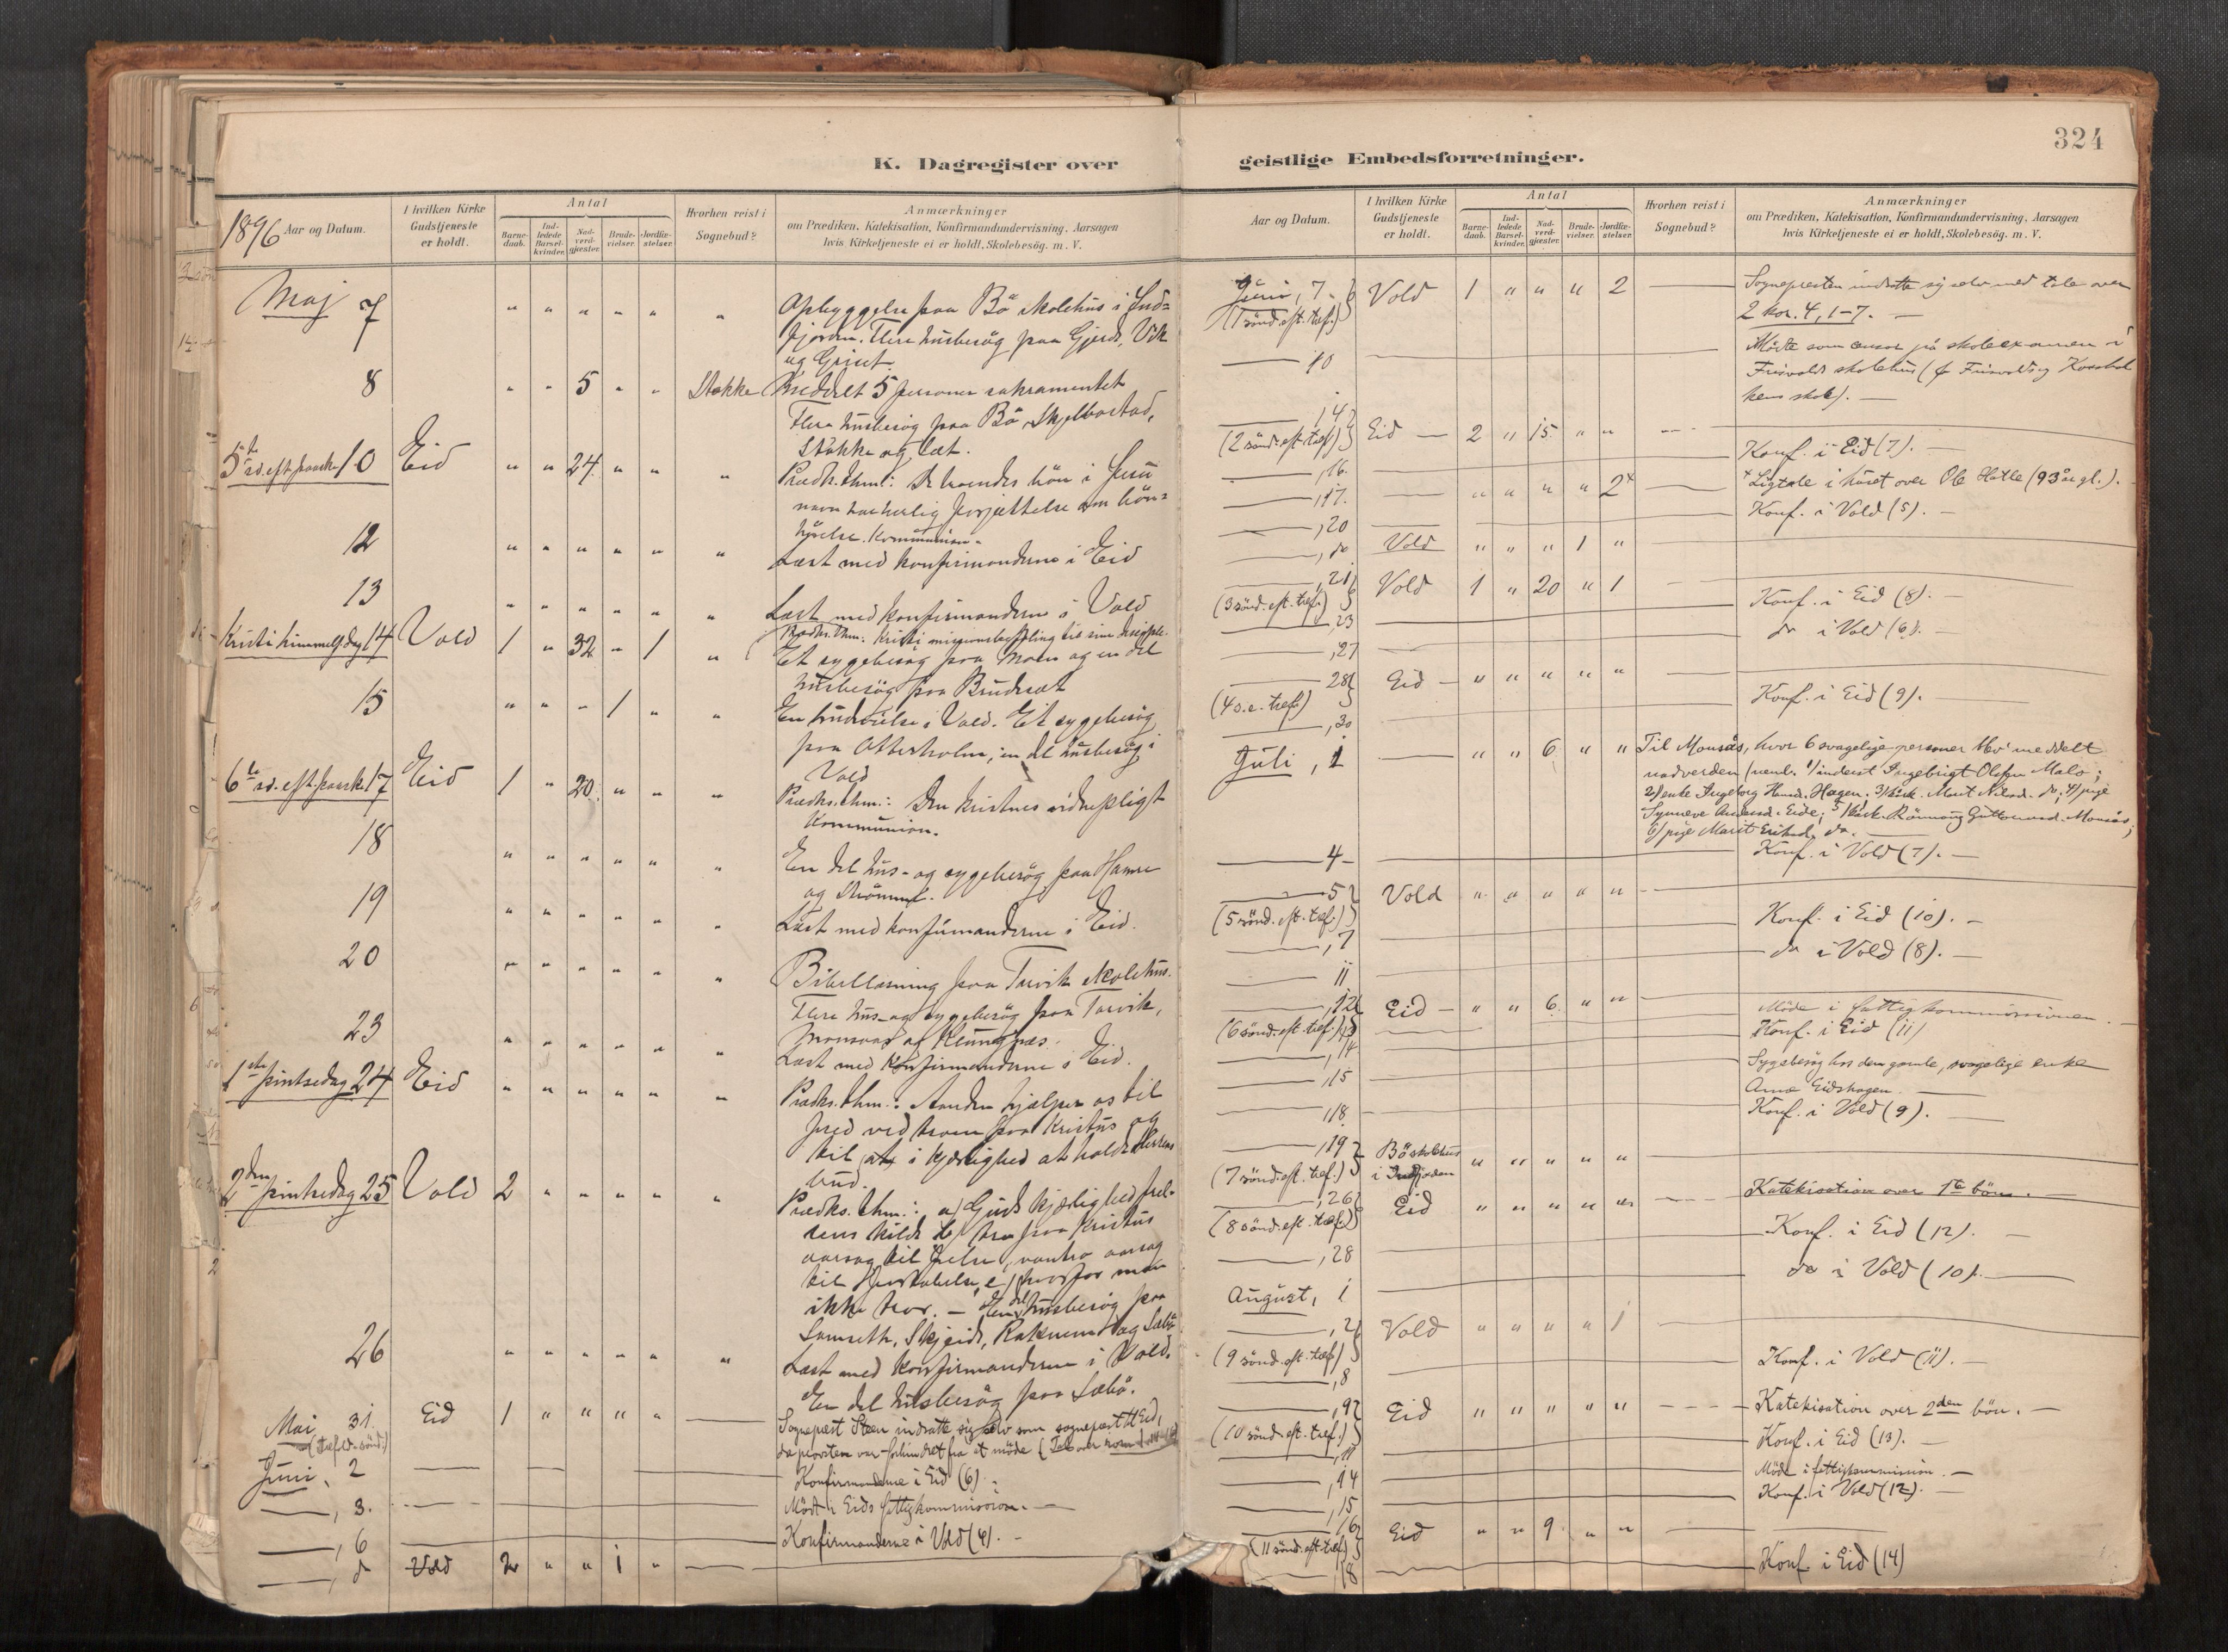 324
K. Dagregister over geistlige Embedsforretninger.
1896 Aar og Datum.
I hvilken Kirke Gudstjeneste er holdt.
Antal
Barnedaab.
Indledede Barselkvinder.
Nadverdgjæster.
Brudevielser.
Jordfæstelser.
Hvorhen reist i Sognebud?
Anmærkninger
om Prædiken, Katekisation, Konfirmandundervisning, Aarsagen
hvis Kirketjeneste ei er holdt, Skolebesög. m. V.
Maj 7 " " " " " " Opbyggelse paa Bö skolehus i Ind=
fjorden. Flere husbesög paa Gjerde, Vik
og Griset.
8 " " 5 " " Stokke Meddelt 5 personer sakramentet
Flere husbesög paa Bö, Skjelbostad,
Stokke og
5te sd. eft. paaske 10 Eid " " 24 " " " Prædk. thm.: De troendes bön i Jesu
navn har herlig forjættelse om bön=
hörelse. Kommunion.
12 " " " " " " Læst med konfirmanderne i Eid
13 " " " " " " Læst med konfirmanderne i Vold
Kristi himmelf. dag 14 Vold 1 " 32 " 1 " Prædks. thm: Kristi missionsbefaling til sine disciple.
Et sygebesög paa Moen og en del
husbesög paa Brudesæt
15 " " " 1 " " En brudvielse i Vold. Et sygebesög
paa Otterholm, en del husbesög i
Vold
6te sd. eft. paaske 17 Eid 1 " 20 " " " Prædks. thm.: Den kristnes vidnepligt
Kommunion.
18 " " " " " " En del hus- og sygebesög paa Hamre
og
19 " " " " " " Læst med konfirmanderne i Eid.
20 " " " " " " Bibellæsning paa Torvik skolehus.
Flere hus- og sygebesög paa Torvik,
Monsaas og Klungnæs.
23 " " " " " " Læst med konfirmanderne i Eid.
1ste pintsedag 24 Eid " " " " " " Prædks. thm.: Aanden hjælper os til
fred ved troen paa Kristus og
til at i kjærlighed at holde Herrens
bud.
2den pintsedag 25 Vold 2 " " " " " Prædks. thm.: a) Guds kjærlighed frel=
sens kilde b) tro paa Kristus
aarsag til frelse, vantro aarsag
til fortabelse, c) hvorfor man
ikke tror. – En del husbesög paa
Somseth, Skjeide, Raknem og Sæbö
26 " " " " " " Læst med konfirmanderne i Vold.
En del husbesög paa Sæbö.
Mai 31 Eid 1 " " " " Sogneprest Steen indsatte sig selv som sogneprest til Eid,
(Trefold.-sönd.) da provsten var forhindret fra at möde (Tale over
Juni, 2 Konfirmanderne i Eid (6).
—, 3. Mödt i Eids fattigkommission.
—, 6 Konfirmanderne i Vold (4).
—, do Vold 2 " " 1 "
Aar og Datum.
I hvilken Kirke Gudstjeneste er holdt.
Antal
Barnedaab.
Indledede Barselkvinder.
Nadverdgjæster.
Brudevielser.
Jordfæstelser.
Hvorhen reist i Sognebud?
Anmærkninger
om Prædiken, Katekisation, Konfirmandundervisning, Aarsagen
hvis Kirketjeneste ei er holdt, Skolebesög. m. V.
Juni, 7 Vold 1 " " " 2 Sognepresten indsatte sig selv med tale over
(1 sönd. eft. tref.) 2 Kor. 4, 1-7. —
— 10 Mödte som censor på skoleexamen i
Frisvolds skolehus (for Frisvolds og
kens skole). —
—, 14 Eid 2 " 15 " "
(2 sönd. eft. tref.)
—, 16. Konf. i Eid (7). —
—, 17. " " " " 2+ + Ligtale i huset over Ole Hatle (93 år gl.).
—, 20 Konf. i Vold (5). —
—, do Vold " " " 1 "
—, 21 Vold 1 " 20 " 1
(3 sönd. eft. tref.)
—, 23 Konf. i Eid (8). —
—, 27 do i Vold (6). —
— 28 Eid " " " " "
(4 s. e. tref.)
—, 30 Konf. i Eid (9). —
Juli, 1 " " 6 " " Til Monsås, hvor 6 svagelige personer blev meddelt
nadverden (neml. 1/ inderst Ingebrigt Olsen Malo;
2/ enke Ingeborg Hansd. Hagen. 3/ kårk. Marit Nilsd. do; 4/ pige
Synneve Eide; 5/ kårk. Rönnaug Guttormsd. Monsås;
6/ pige Marit Eriksd. do.
— 4 — Konf. i Vold (7). —
— 5 Vold " " " " "
(5 sönd. eft. tref.)
—, 7 Konf. i Eid (10). —
— 11 do i Vold (8). —
—, 12 Eid " " 6 " "
(6 sönd. eft. tref.) 13 Möde i fattigkommissionen. —
—, 14 Konf. i Eid (11)
—, 15 Sygebesög hos den gamle, svagelige enke
Anne Eidshagen.
—, 18 Konf. i Vold (9). —
—, 19 Bö skolehus i Indfjorden " " " " "
(7 sönd. eft. tref.)
—, 26 Eid " " " " " Katekisation over 1te bön. —
(8 sönd. eft. tref.)
—, 28 Konf. i Eid (12). —
August, 1 do i Vold (10). —
—, 2 Vold " " " " 1
(9 sönd. eft. tref.)
—, 8 Konf. i Vold (11). —
—, 9 Eid " " " " " Katekisation over 2den bön. —
(10 sönd. eft. tref.)
—, 11 Konf. i Eid (13). —
—, 14 Möde i fattigkommission. —
—, 15 Konf. i Vold (12). —
—, 16 Eid " " 9 " "
(11 sönd. eft. tref.)
—, 18 Konf. i Eid (14)